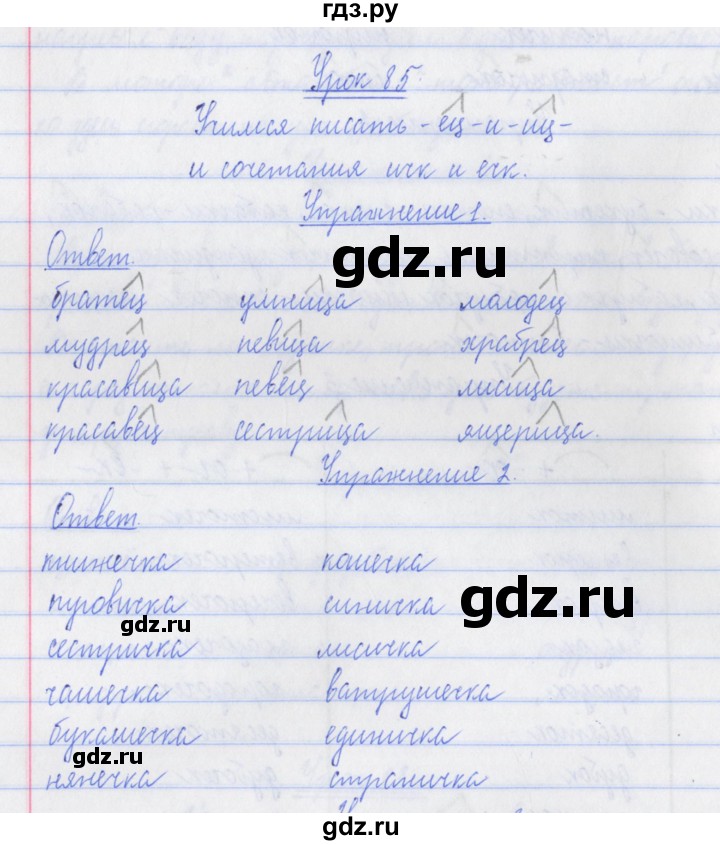 гдз.ру
Урок 85.
Учимся писать -ец- и -иц-
и сочетания ичк и ечк.
Упражнение 1.
gdz.ru
Ответ.
братец умница молодец
мудрец певица храбрец
красавица певец лисица
красавец сестрица ящерица.
Упражнение 2.
Ответ.
книжечка кошечка
пуговичка синичка
gdz.ru
gdz.ru
сестричка лисичка
чашечка ватрушечка
букашечка единичка
gdz.ru
нянечка страничка
gdz.ru